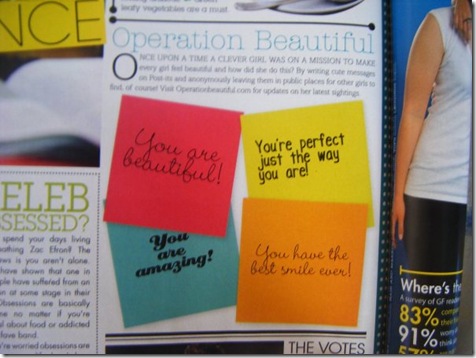 leafy vegetables are a must
NCE
Operation Beautiful
ONCE UPON A TIME A CLEVER GIRL WAS ON A MISSION TO MAKE
every girl feel beautiful and how did she do this? By writing cute messages
on Post-its and anonymously leaving them in public places for other girls to
find, of course! Visit Operationbeautiful.com for updates on her latest sightings.
You are
beautiful!
You're perfect
just the way
you are!
You
are
amazing!
You have the
best smile ever!
ELEB
SESSED?
spend your days living
athing Zac Efron? The
ws is you aren't alone.
have shown that one in
ple have suffered from an
n at some stage in their
Obsessions are basically
me no matter if you're
l about food or addicted
fave band.
're worried obsessions are
THE VOTES
Where's the
A survey of GF reade
83%
91%